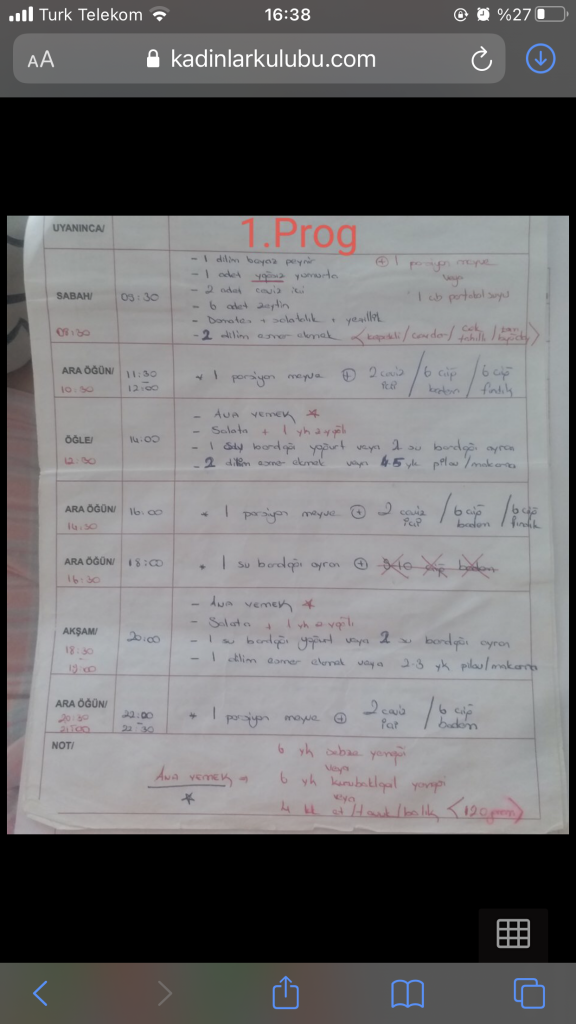 Turk Telekom
16:38
%27
AA
kadinlarkulubu.com
1.Prog
UYANINCA/
SABAH/ 09:30
08:30
- 1 dilim beyaz peynir + 1 porsiyon meyve
- 1 adet yağsız yumurta veya
- 2 adet ceviz içi 1 cb portakal suyu
- 6 adet zeytin
- Domates + salatalık + yeşillik
- 2 dilim esmer ekmek < kepekli / çavdar / çok tahıllı / tam buğday >
ARA ÖĞÜN/ 11:30
10:30 12:00
* 1 porsiyon meyve + 2 ceviz içi / 6 çiğ badem / 6 çiğ fındık
ÖĞLE/ 14:00
12:30
- Ana yemek *
- Salata + 1 yk z.yağlı
- 1 su bardağı yoğurt veya 2 su bardağı ayran
- 2 dilim esmer ekmek veya 4.5 yk pilav/makarna
ARA ÖĞÜN/ 16:00
14:30
* 1 porsiyon meyve + 2 ceviz içi / 6 çiğ badem / 6 çiğ fındık
ARA ÖĞÜN/ 18:00
16:30
* 1 su bardağı ayran + çiğ badem
AKŞAM/ 20:00
18:30
19:00
- Ana yemek *
- Salata + 1 yk z.yağlı
- 1 su bardağı yoğurt veya 2 su bardağı ayran
- 1 dilim esmer ekmek veya 2-3 yk pilav/makarna
ARA ÖĞÜN/ 22:00
20:30 22:30
21:00
* 1 porsiyon meyve + 2 ceviz içi / 6 çiğ badem
NOT/
6 yk sebze yemeği
veya
Ana yemek = 6 yk kurubaklagil yemeği
*
veya
4 et / tavuk / balık <120 gram>